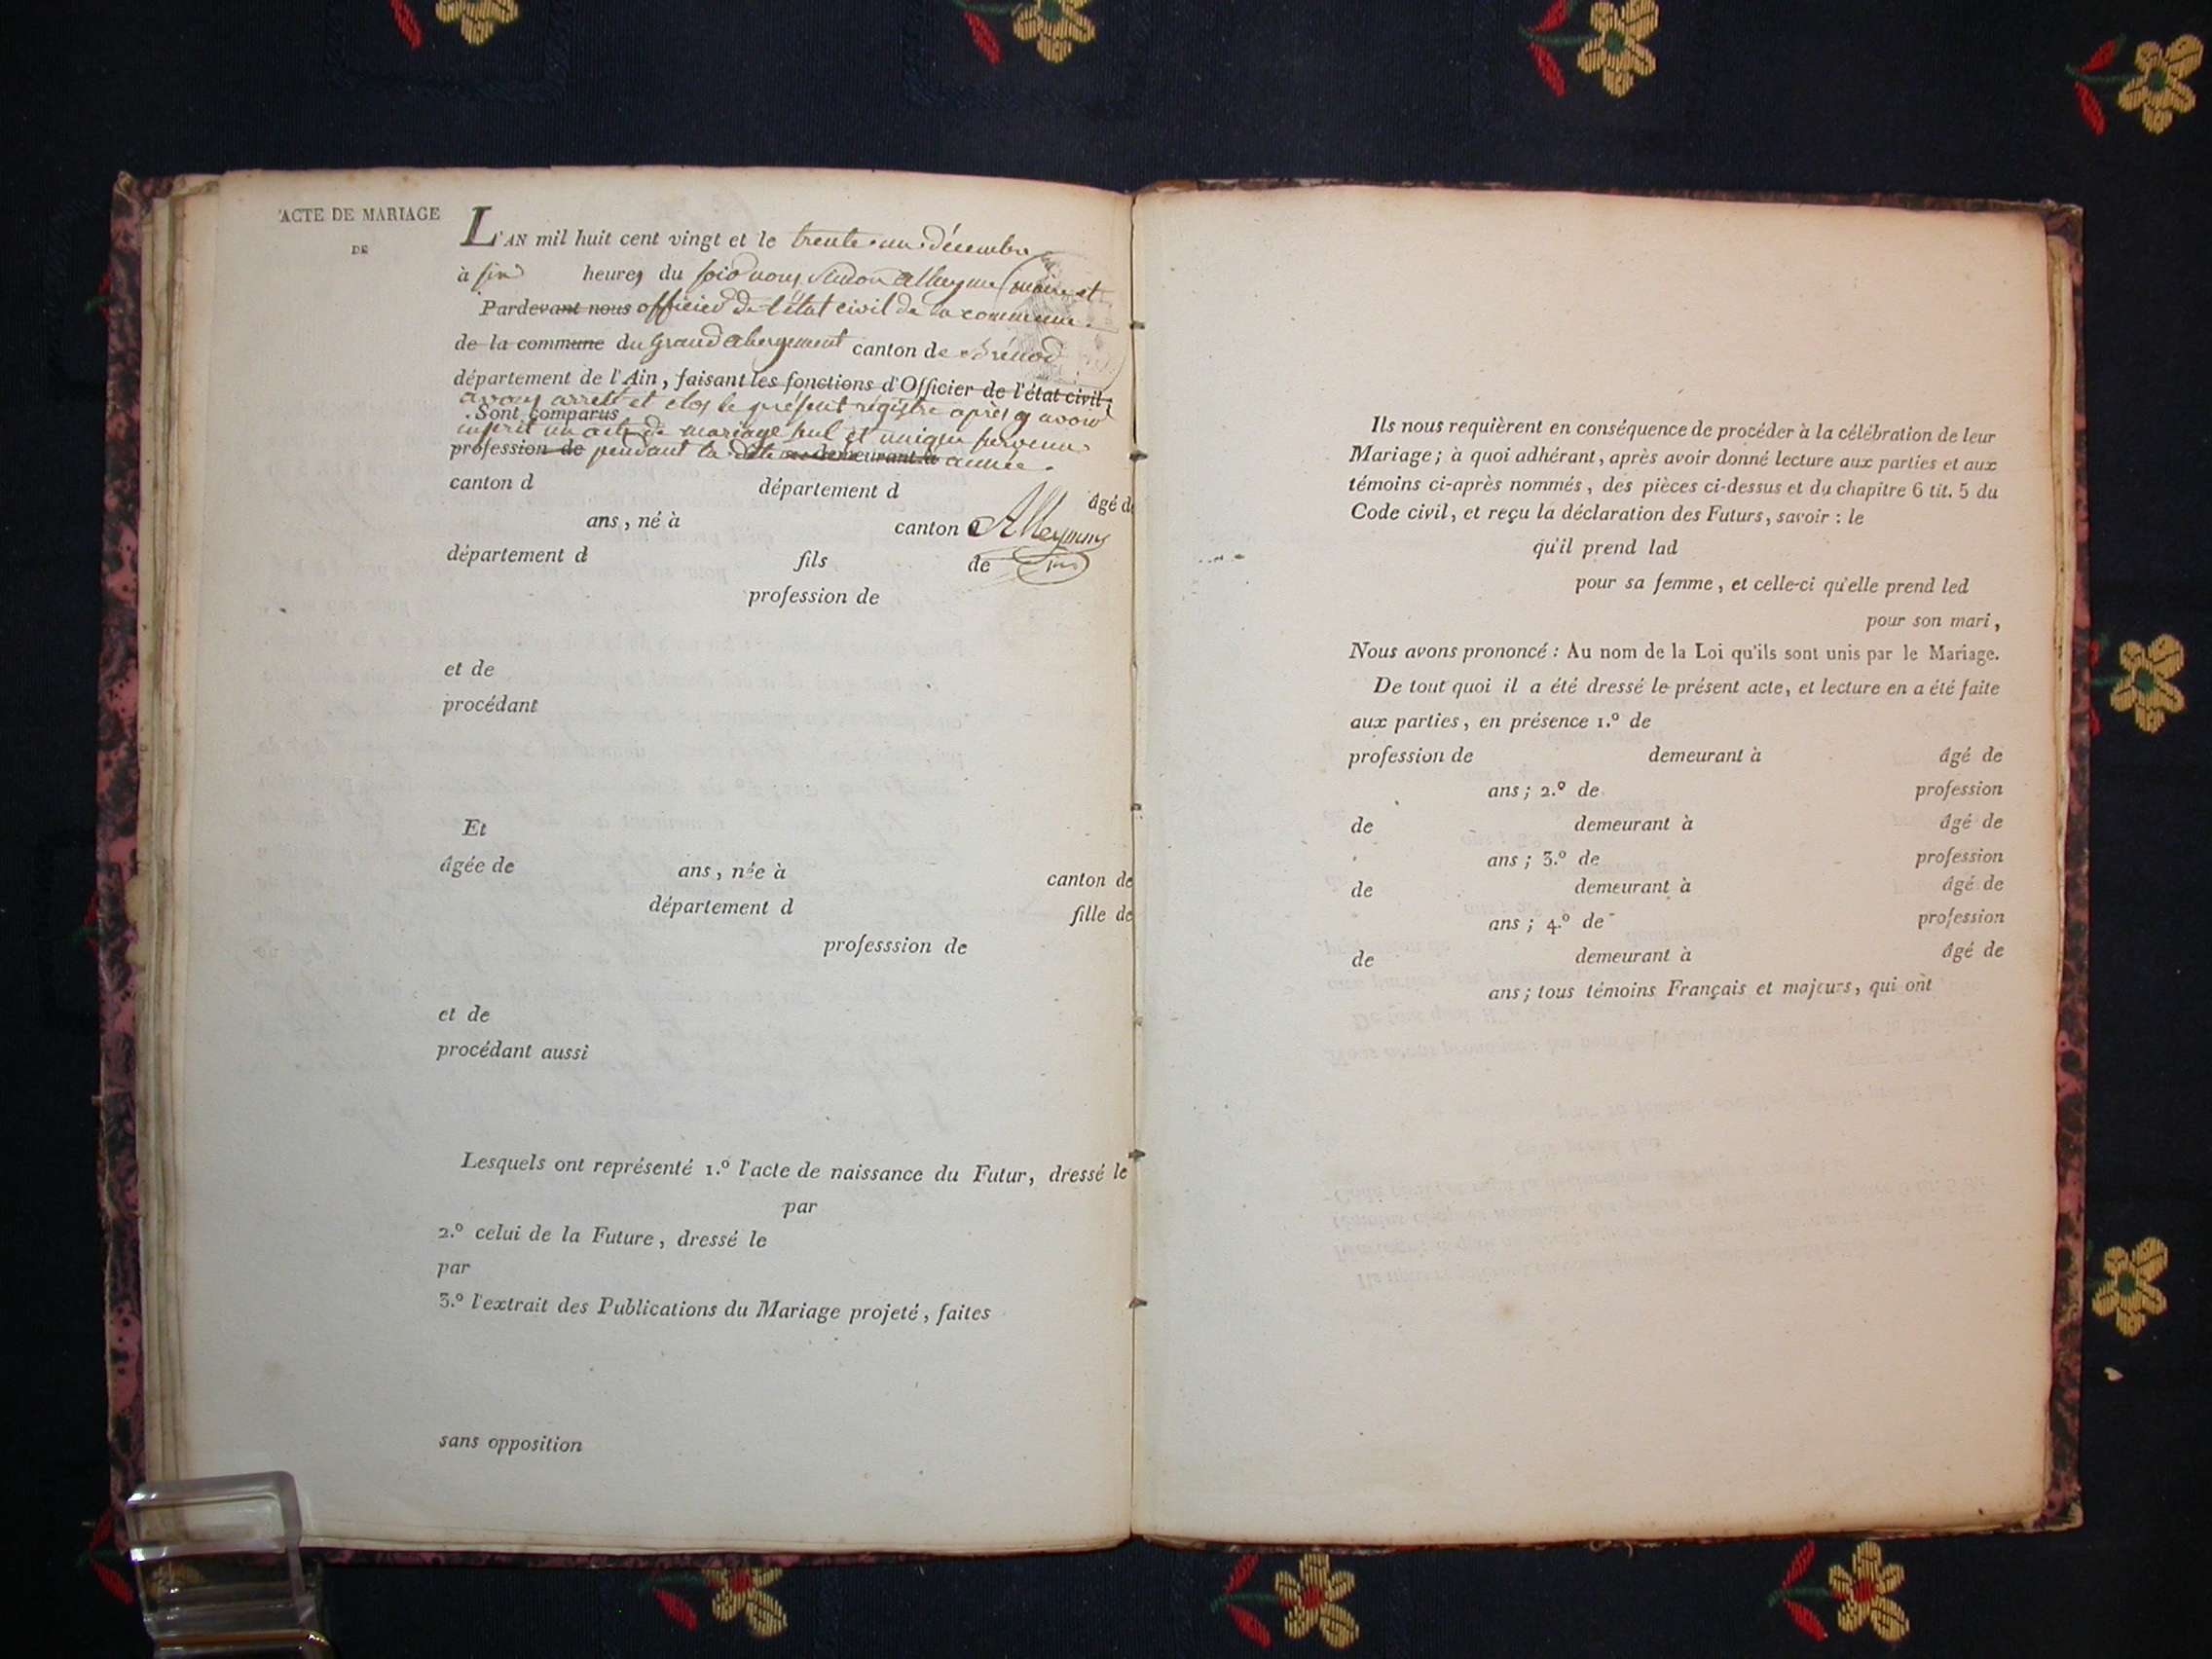 ACTE DE MARIAGE
DE
L'AN mil huit cent vingt et le trente-un décembre
à six heures du soir nous Simon Alleyme maire et
Pardevant nous officier de l'état civil de la commune
de la commune du Grand abergement canton de Brénod
département de l'Ain, faisant les fonctions d'Officier de l'état civil;
avons arrêté et clos le présent régistre après y avoir
Sont comparus
inscrit un acte de mariage seul et unique survenu
profession de pendant la dite demeurant à année.
canton d département d âgé de
ans, né à canton d
département d fils de
profession de
et de
procédant
Et
âgée de ans, née à canton de
département d fille de
professsion de
et de
procédant aussi
Lesquels ont représenté 1.º l'acte de naissance du Futur, dressé le
par
2.º celui de la Future, dressé le
par
3.º l'extrait des Publications du Mariage projeté, faites
sans opposition
Ils nous requièrent en conséquence de procéder à la célébration de leur
Mariage; à quoi adhérant, après avoir donné lecture aux parties et aux
témoins ci-après nommés, des pièces ci-dessus et du chapitre 6 tit. 5 du
Code civil, et reçu la déclaration des Futurs, savoir : le
qu'il prend lad
pour sa femme, et celle-ci qu'elle prend led
pour son mari,
Nous avons prononcé : Au nom de la Loi qu'ils sont unis par le Mariage.
De tout quoi il a été dressé le présent acte, et lecture en a été faite
aux parties, en présence 1.º de
profession de demeurant à âgé de
ans; 2.º de profession
de demeurant à âgé de
ans; 3.º de profession
de demeurant à âgé de
ans; 4.º de profession
de demeurant à âgé de
ans; tous témoins Français et majeurs, qui ont